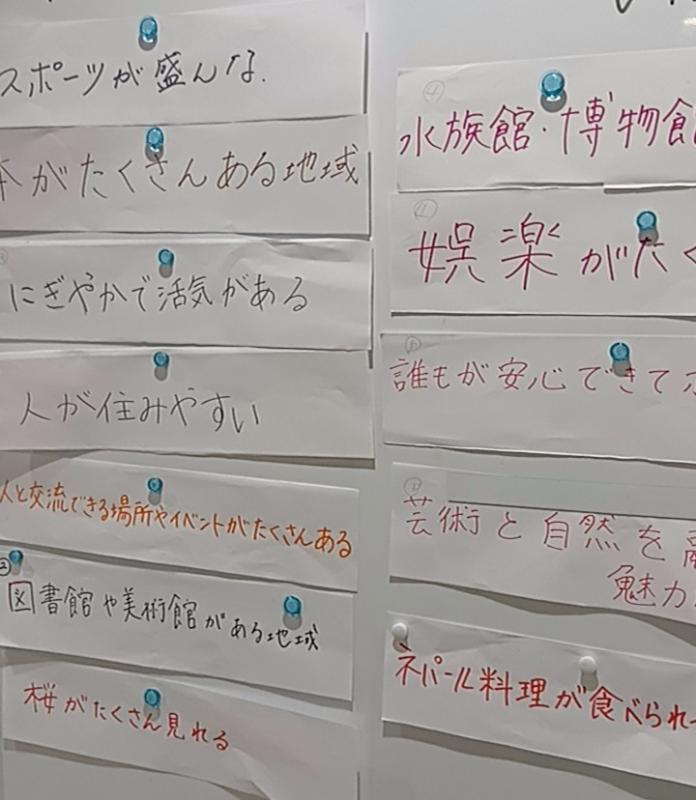 スポーツが盛んな.
本がたくさんある地域
にぎやかで活気がある
人が住みやすい
人と交流できる場所やイベントがたくさんある
②
図書館や美術館がある地域
桜がたくさん見れる
水族館・博物館
娯楽がたく
誰もが安心できて
芸術と自然を
魅力
ネパール料理が食べられ